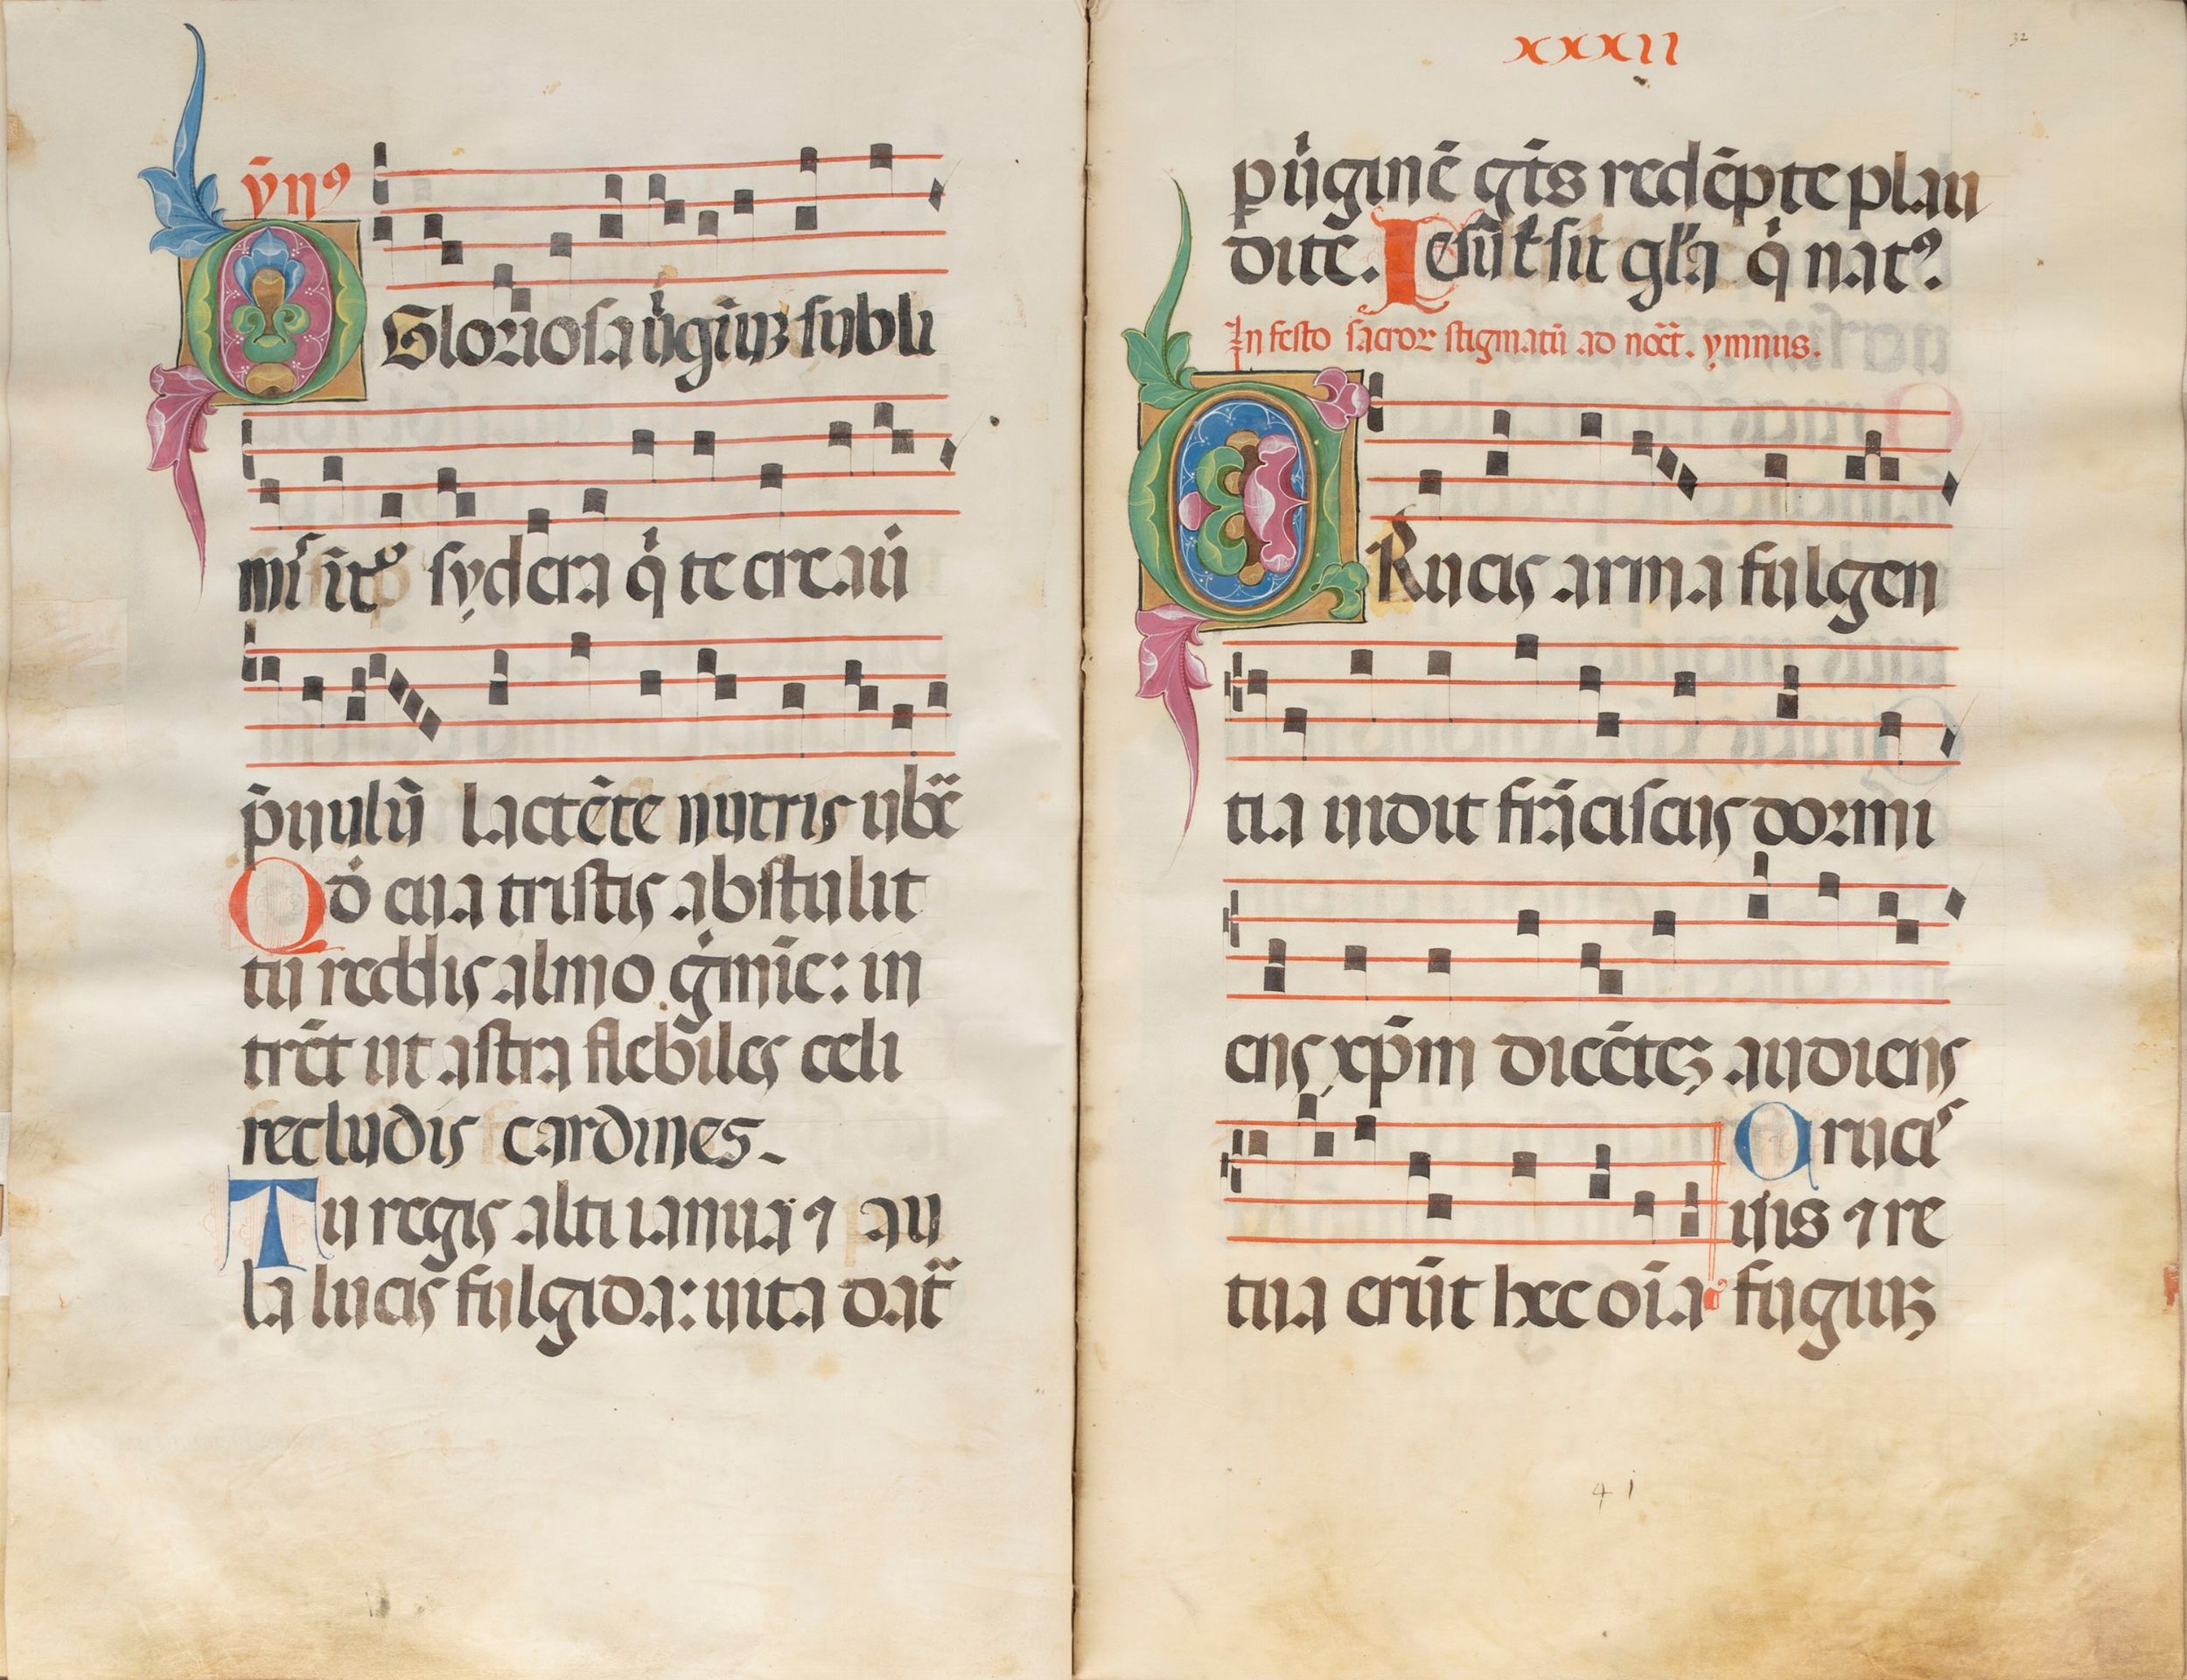 ȳnꝰ
O Gloriosa ũginũ subli
mis ĩtᵒ sydera q̇ te creaũ
p̄uulũ lactẽte nutris ub̃e
Qđ eua tristis abstulit
tu reddis almo ġmĩe: in
trẽt ut astra flebiles celi
recludis cardines.
Tu regis alti ianua ⁊ au
la lucis fulgida: uita dat̃
XXXII
32
p ũginẽ gẽ̃s redẽpte plau
dite. Iesu t̃ sit gl̃a q̇ natꝰ.
In festo sacroꝝ stigmatũ ad noct̃. ymnus.
CRucis arma fulgen
tia uidit frãciscus dormi
ens xp̄m dicẽteꝫ audiens
Cruci᷒
uis ⁊ re
tua erũt hec oĩa fuguꝝ
41